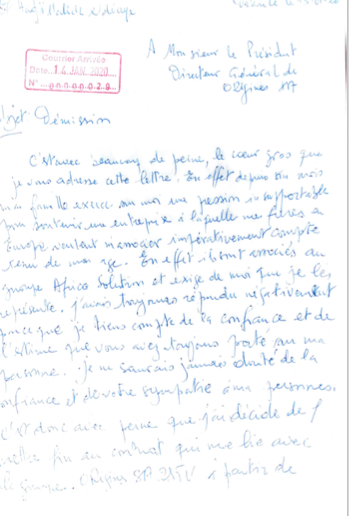 Courrier Arrivée
Date 14 JAN. 2020
N° 00000029
A Monsieur le Président
Directeur Général de
Origines SA
Objet Démission
C'est avec beaucoup de peine, le cœur gros que
je vous adresse cette lettre. En effet depuis un mois
ma famille exerce sur moi une pression insupportable
pour soutenir une entreprise à laquelle mes frères en
Europe veulent m'associer impérativement compte
tenu de mon age. En effet ils sont associés au
groupe Africa Solution et exige de moi que je les
représente. J'avais toujours répondu négativement
parce que je tiens compte de la confiance et de
l'estime que vous avez toujours porté sur ma
personne. Je ne saurais jamais douté de la
confiance et de votre sympathie à ma personne.
C'est donc avec peine que j'ai décidé de
mettre fin au contrat qui me lie avec
le groupe Origines SA à partir de